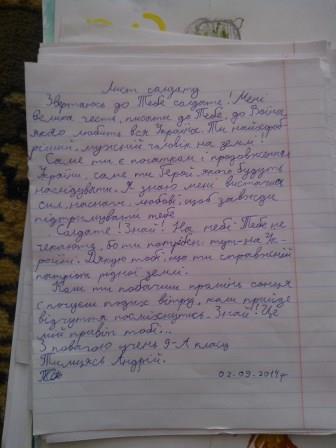 Лист солдату
Звертаюсь до Тебе солдате! Мені
велика честь, писати до Тебе, до Воїна,
якого любить вся Україна. Ти найхороб
ріший, мужній чоловік на землі!
Саме ти є початком і продовження
України, саме ти Герой, якого будуть
наслідувати. Я знаю мені вистачить
сил, наснаги, любові, щоб завжди
підтримувати тебе.
Солдате! Знай! На небі Тебе не
чекають, бо ти потрібен тут-на Ук-
раїні. Дякую тобі, що ти справжній
патріот рідної землі.
Коли ти побачиш промінь сонця
і почуєш подих вітру, коли прийде
відчуття посміхнутись. Знай! Це
мій привіт тобі...
З повагою учень 9-А класу
Андрій.
02.09.2014р